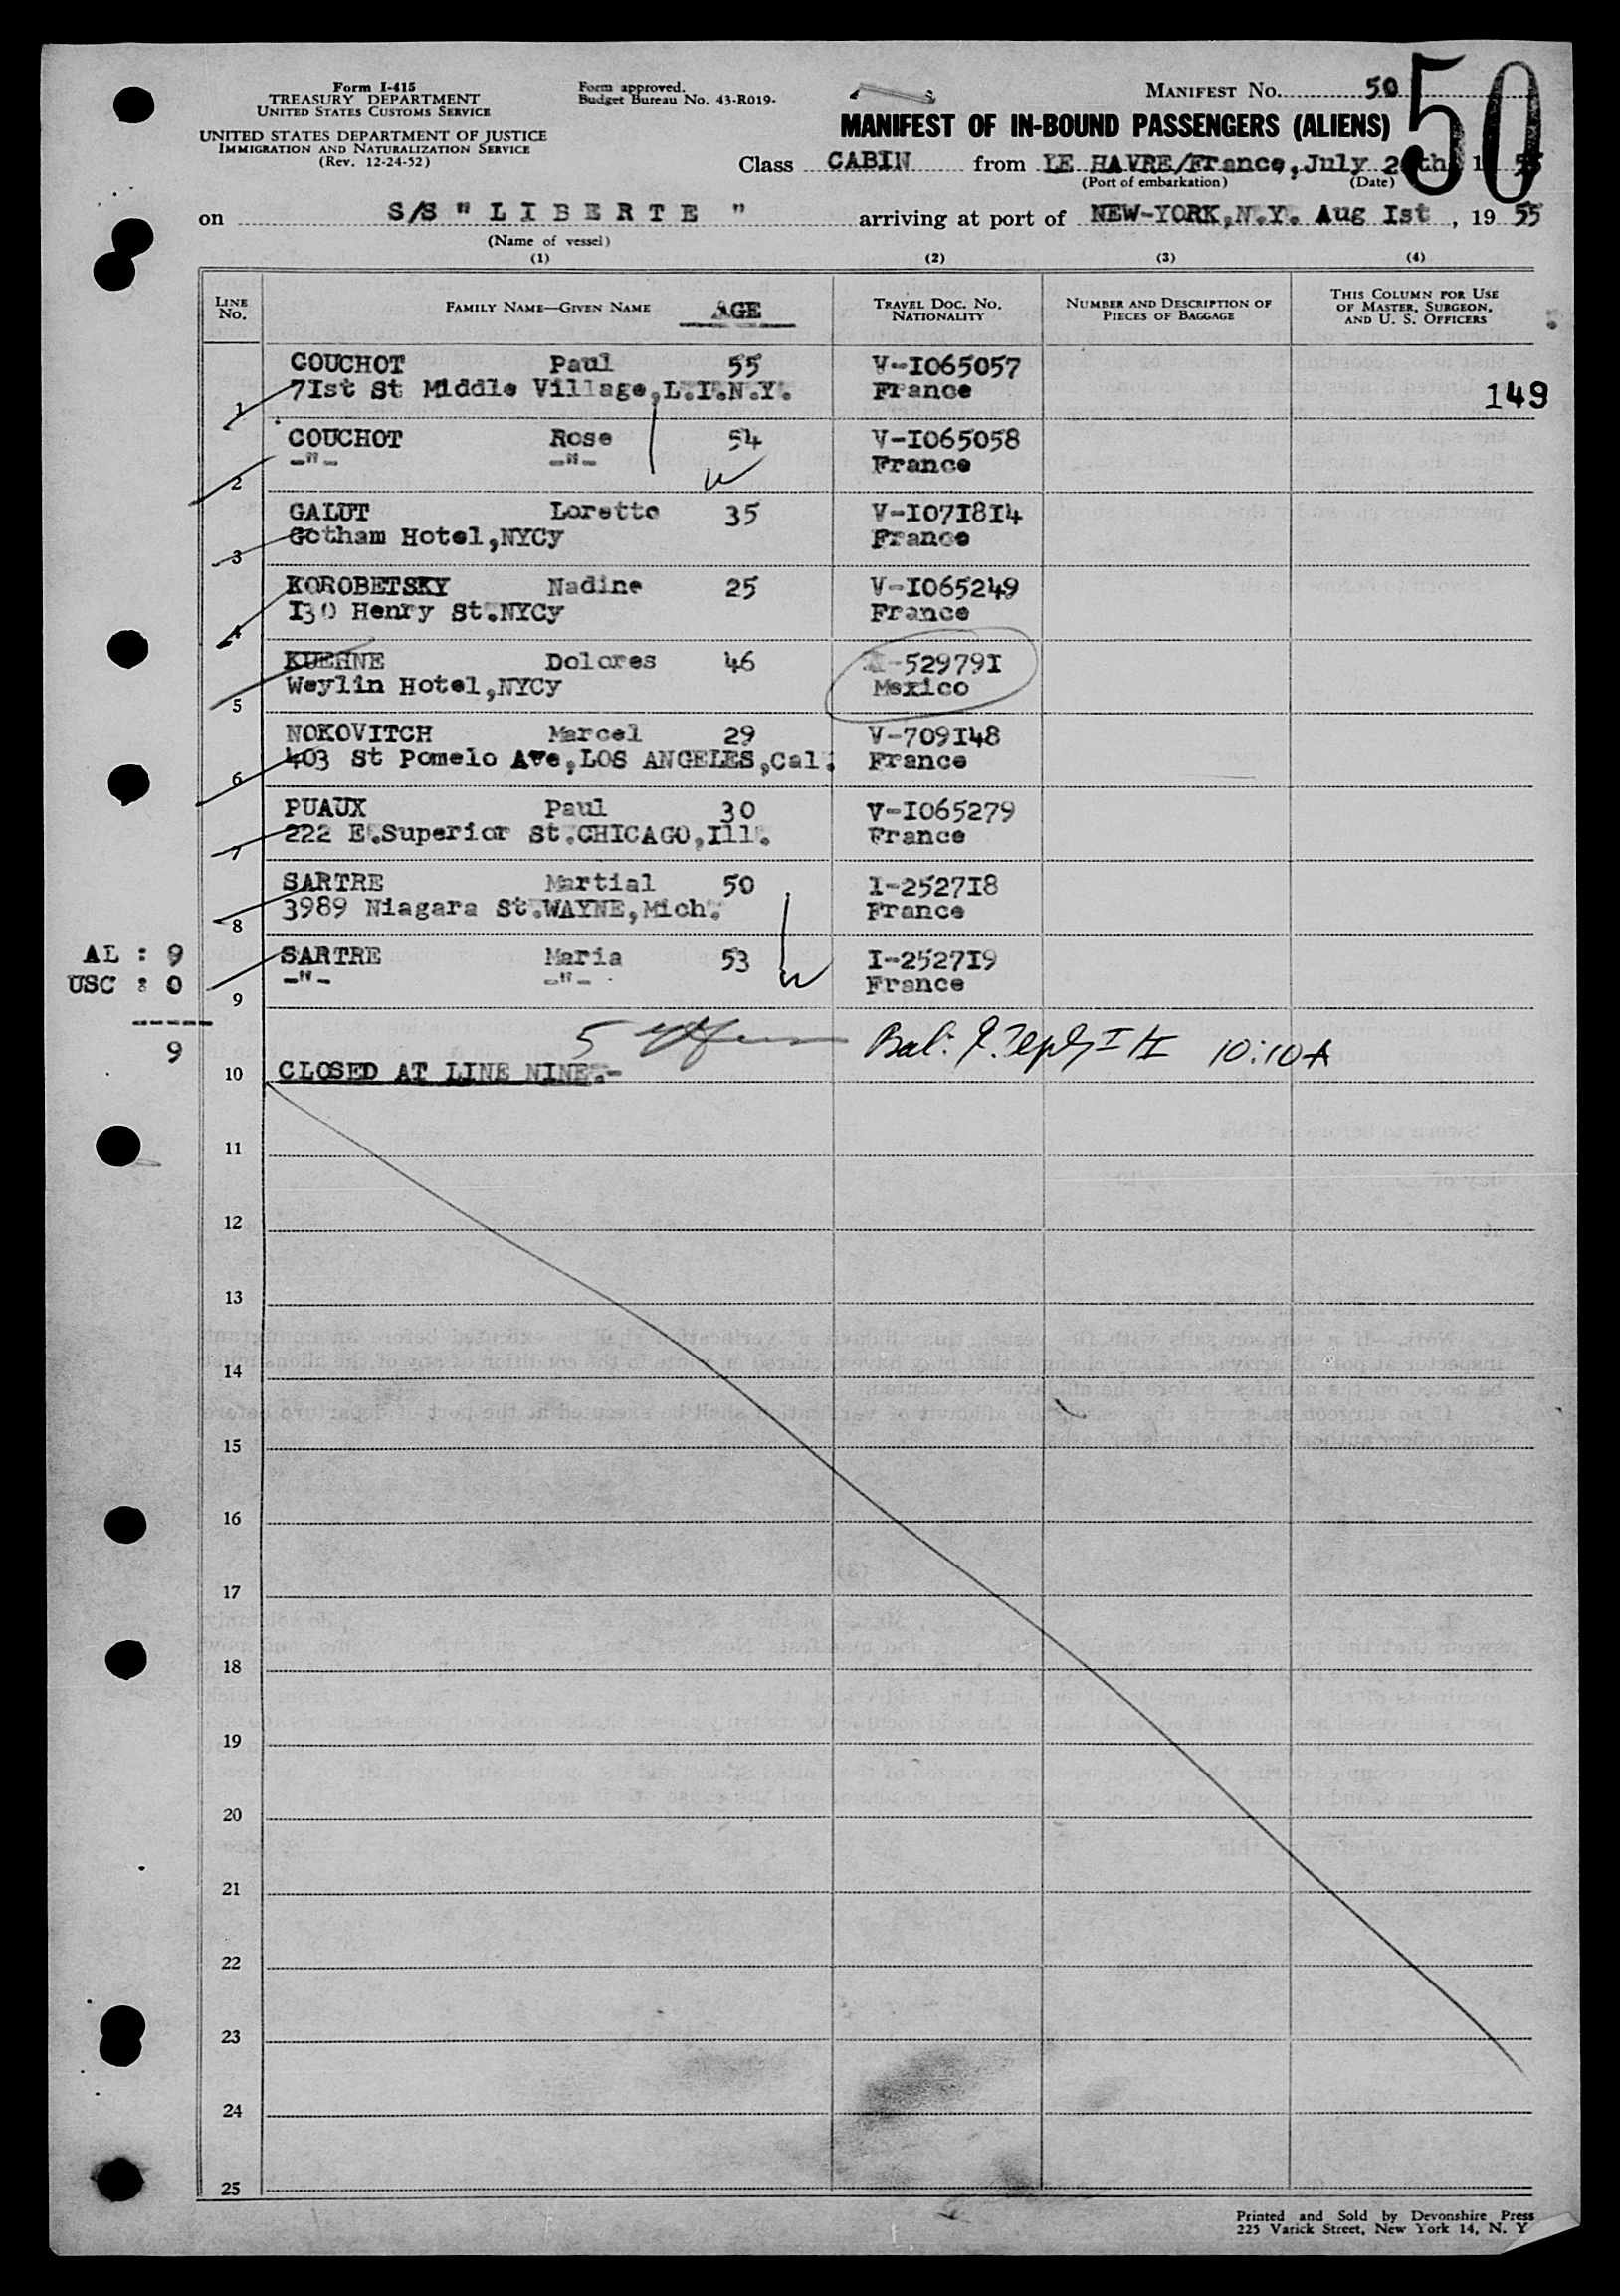 Form I-415
TREASURY DEPARTMENT
UNITED STATES CUSTOMS SERVICE
UNITED STATES DEPARTMENT OF JUSTICE
IMMIGRATION AND NATURALIZATION SERVICE
(Rev. 12-24-52)
Form approved.
Budget Bureau No. 43-R019-
MANIFEST No. 50
50
MANIFEST OF IN-BOUND PASSENGERS (ALIENS)
Class CABIN from LE HAVRE/France, July
(Port of embarkation) (Date)
on S/S " L I B E R T E " arriving at port of NEW-YORK,N.Y. Aug Ist, 19 55
(Name of vessel)
(1) (2) (3) (4)
LINE No. FAMILY NAME—GIVEN NAME AGE TRAVEL DOC. No. NATIONALITY NUMBER AND DESCRIPTION OF PIECES OF BAGGAGE THIS COLUMN FOR USE OF MASTER, SURGEON, AND U. S. OFFICERS
COUCHOT Paul 55 V-I065057
1 7Ist St Middle Village,L.I.N.Y. France 149
COUCHOT Rose 54 V-I065058
2 -"- -"- France
GALUT Loretto 35 V-I07I8I4
3 Gotham Hotel,NYCy France
KOROBETSKY Nadine 25 V-I065249
4 I30 Henry St.NYCy France
KUEHNE Dolores 46 -52979I
5 Weylin Hotel,NYCy Mexico
NOKOVITCH Marcel 29 V-709I48
6 403 St Pomelo Ave,LOS ANGELES,Cal. France
PUAUX Paul 30 V-I065279
7 222 E.Superior St.CHICAGO,Ill. France
SARTRE Martial 50 I-2527I8
8 3989 Niagara St.WAYNE,Mich. France
AL : 9 SARTRE Maria 53 I-2527I9
USC : 0 9 -"- -"- France
-----
9
5 Bal: 10:10 A
10 CLOSED AT LINE NINE.-
11
12
13
14
15
16
17
18
19
20
21
22
23
24
25
Printed and Sold by Devonshire Press
225 Varick Street, New York 14, N. Y